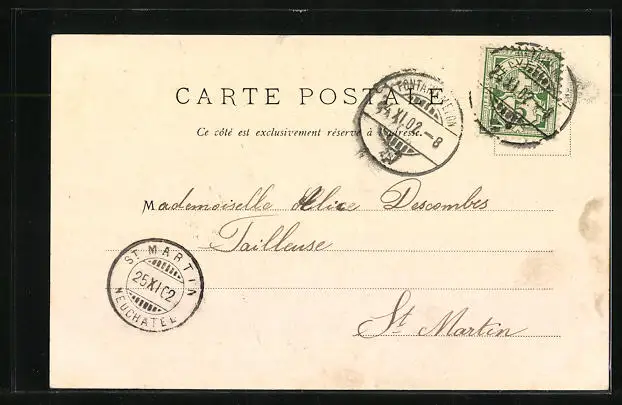 CARTE POSTALE
Ce côté est exclusivement réservé à l'adresse.
XI.02.-8
Mademoiselle Alice Descombes
Tailleuse
St Martin
ST MARTIN
25 XI 02
NEUCHATEL